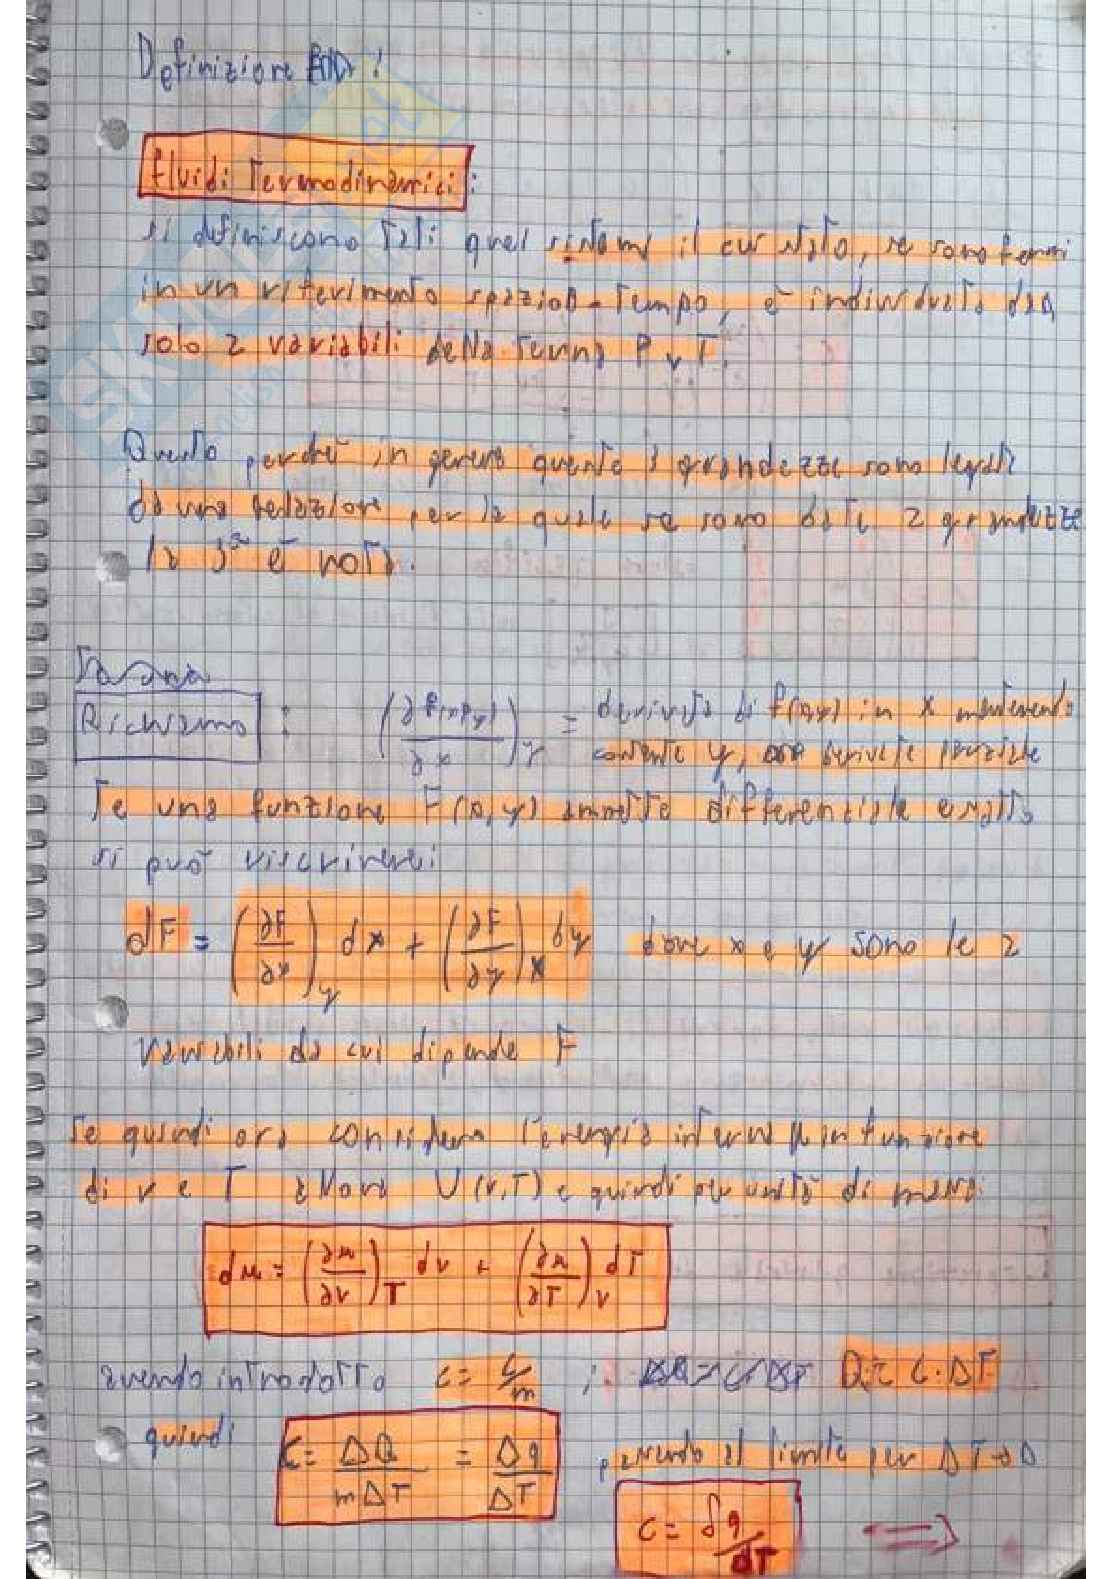 Definizione
fluidi Termodinamici:
si definiscono tali quei sistemi il cui stato, se sono fermi
in un riferimento spazio-tempo, è individuato da
solo 2 variabili della terna P v T.
Questo perché in genere queste 3 grandezze sono legate
da una relazione per la quale se sono date 2 grandezze
la 3ª è nota.
Richiamo: (∂f(x,y)/∂x)y = derivata di f(x,y) in x mantenendo
costante y, derivate parziale
Se una funzione F(x,y) ammette differenziale esatto
si può riscrivere:
dF = (∂F/∂x)y dx + (∂F/∂y)x dy dove x e y sono le 2
variabili da cui dipende F
Se quindi ora considero l'energia interna in funzione
di v e T allora U(v,T) e quindi per unità di massa:
du = (∂u/∂v)T dv + (∂u/∂T)v dT
avendo introdotto c = C/m ; Q = C·ΔT
quindi C = ΔQ/mΔT = Δq/ΔT passando al limite per ΔT→0
c = δq/dT ⟹